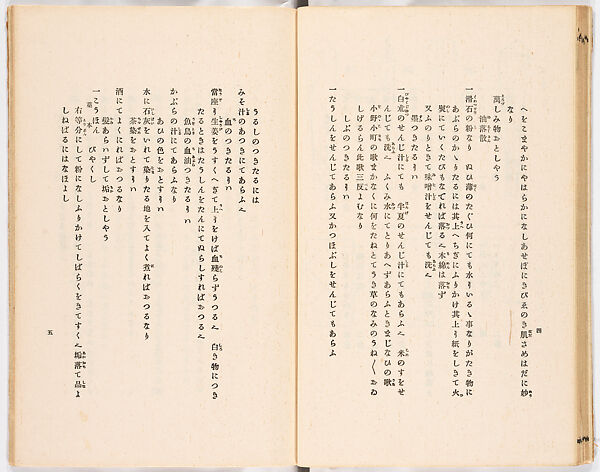 へをこまやかにやはらかになしあせぼにきびゑのき肌さめはだに妙
なり
萬しみ物おとしやう
油落散
一滑石の粉なり　ぬひ薄のたぐひ何にても水りいるゝ事なりがたき物に
あぶらのかゝりたるには其上へちぎにふりかけ其上り紙をしきて火
熨にていくたびもなでれば落る也木綿は落ず
又ふのりときて味噌汁をせんじても洗也
墨つきたるり
一白朮のせんじ汁にても　半夏のせんじ汁にてもあらふ也　米のすをせ
んじても洗也　ふくみ水にてとりあへずあらふときまじなひの歌
小野小町の歌まかなくに何をたねとてうき草のなみのうね〳〵おゐ
しげるらん此歌三反よむなり
しぶのつきたるり
一たうしんをせんじてあらふ又かつほぶしをせんじてもあらふ
四
うるしのつきたるには
みそ汁のあつきにてあらふ也
血のつきたるり
當座り生姜をうすくへぎて上りをけば血殘らずうつる也　白き物につき
たるときはたうしんをたんにてぬらしすればおつる也
魚鳥の血油つきたるり
かぶらの汁にてあらふなり
あひの色をおとすり
水に石灰をいれて染りたる地を入てよく煮ればおつるなり
茶染をおとすり
酒にてよくにればおつるなり
髮あらハずして垢おとしやう
一こうほん　びやくし
右等分にして粉になしふりかけてしばらくをきてすく也垢落て品よ
しねばるにはなほよし
五